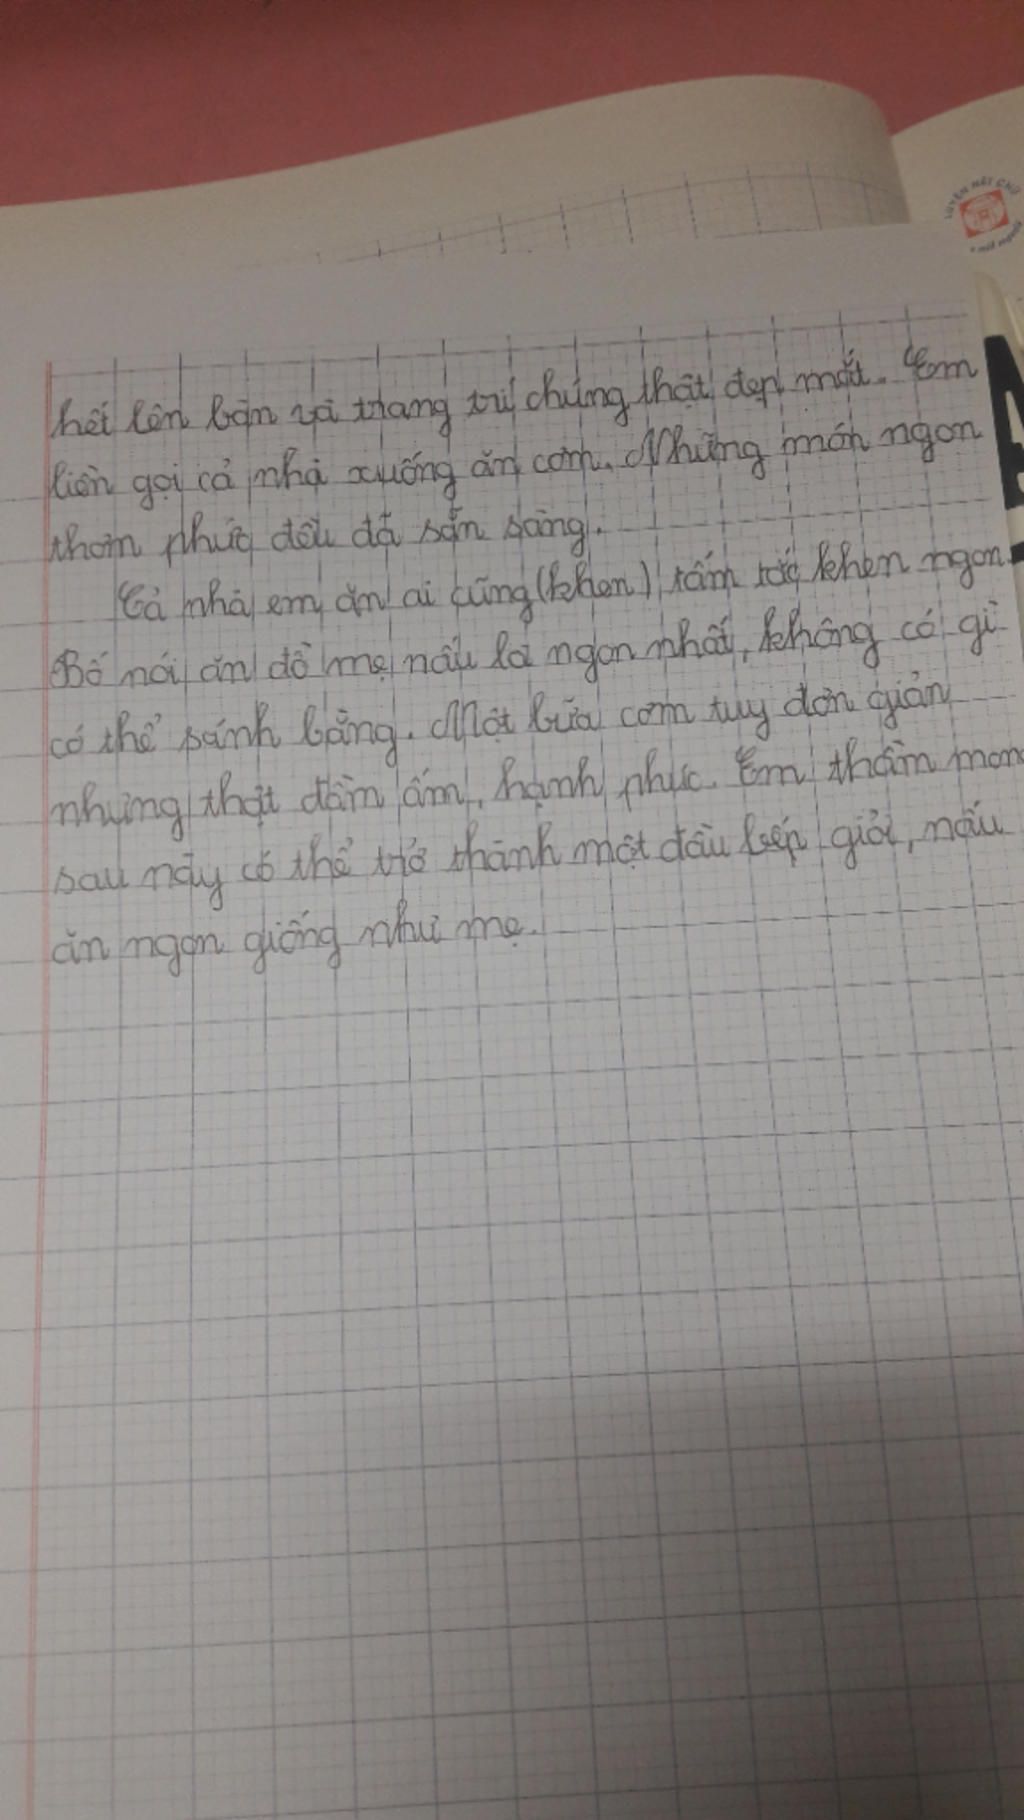 hết lên bàn và trang trí chúng thật đẹp mắt. Em
liền gọi cả nhà xuống ăn cơm. Những món ngon
thơm phức đều đã sẵn sàng.
Cả nhà em ăn ai cũng (khen) tấm tắc khen ngon.
Bố nói ăn đồ mẹ nấu là ngon nhất, không có gì
có thể sánh bằng. Một bữa cơm tuy đơn giản
nhưng thật đầm ấm, hạnh phúc. Em thầm mong
sau này có thể trở thành một đầu bếp giỏi, nấu
ăn ngon giống như mẹ.
LUYỆN NÉT CHỮ